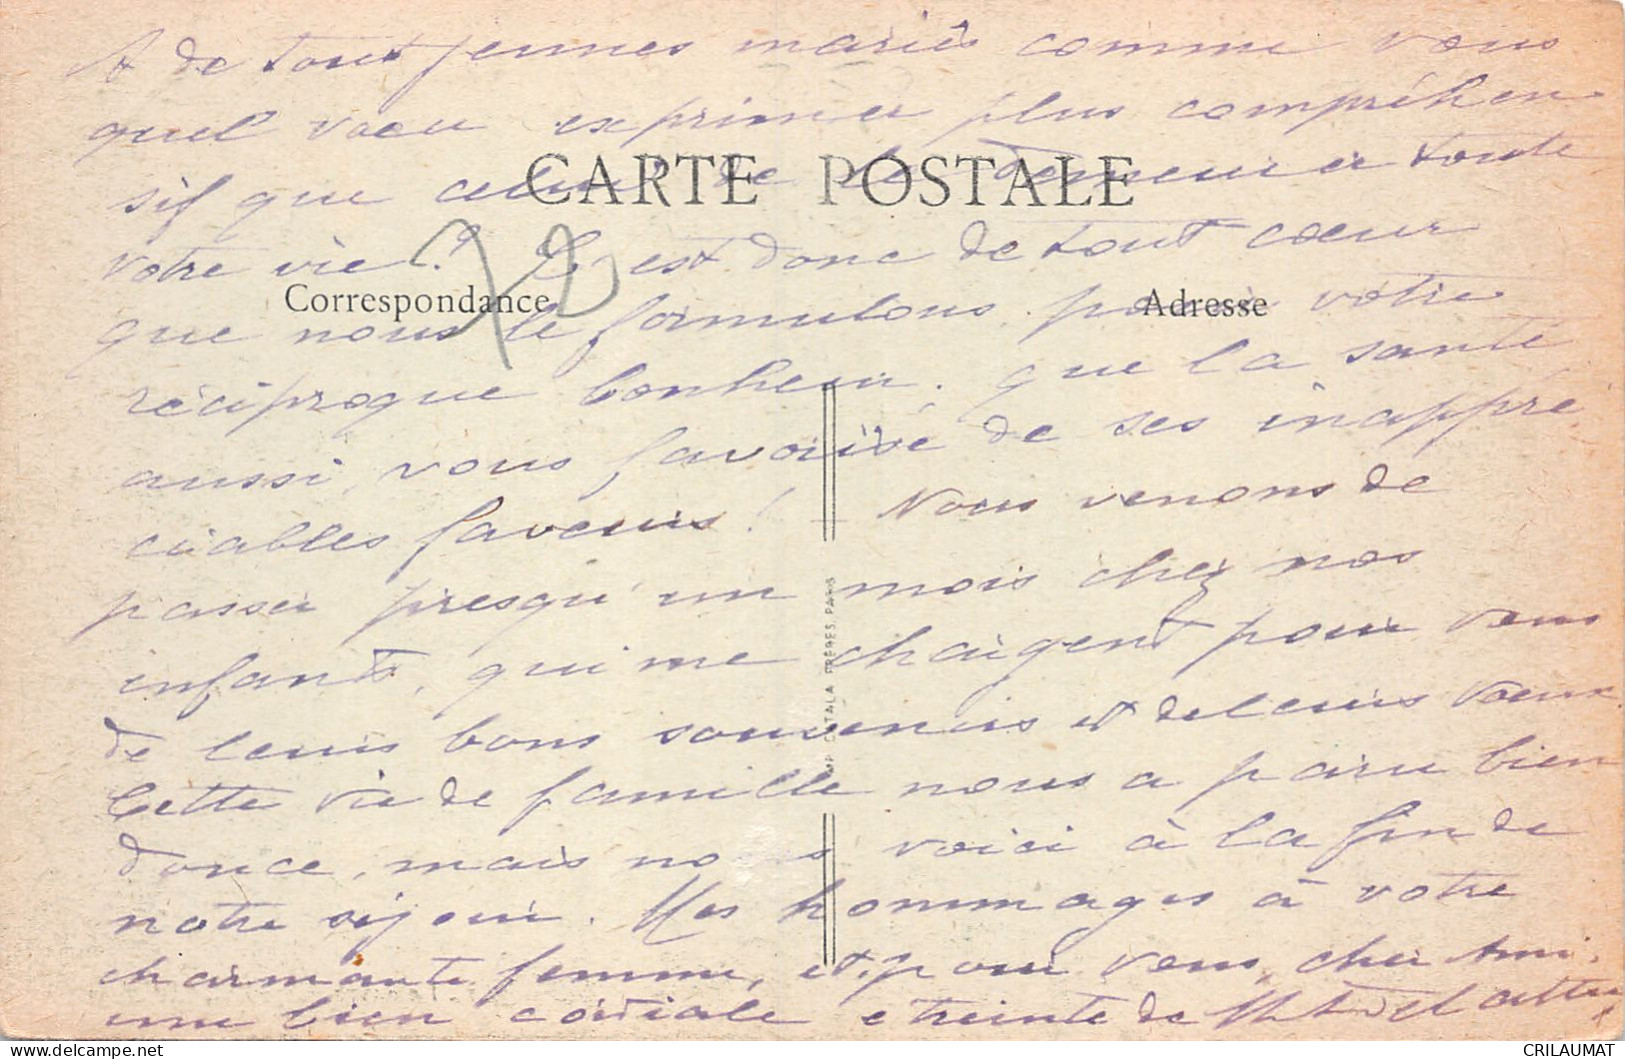 A de tout jeunes mariés comme vous
quel voeu exprimer plus compréhen
sif que celui de le demeurer toute
CARTE POSTALE
votre vie ? C'est donc de tout coeur
Correspondance
Adresse
que nous le formulons pour votre
réciproque bonheur, que la santé
aussi, vous favorise de ses inappré
ciables faveurs ! – Nous venons de
passer presqu'un mois chez nos
enfants, qui me chargent pour vous
de leurs bons souvenirs et de leurs voeux.
Cette vie de famille nous a paru bien
douce, mais nous voici à la fin de
notre séjour. Mes hommages à votre
charmante femme, et, pour vous, cher Ami,
une bien cordiale etreinte de
IMP. CATALA FRÈRES. PARIS
12
CRILAUMAT